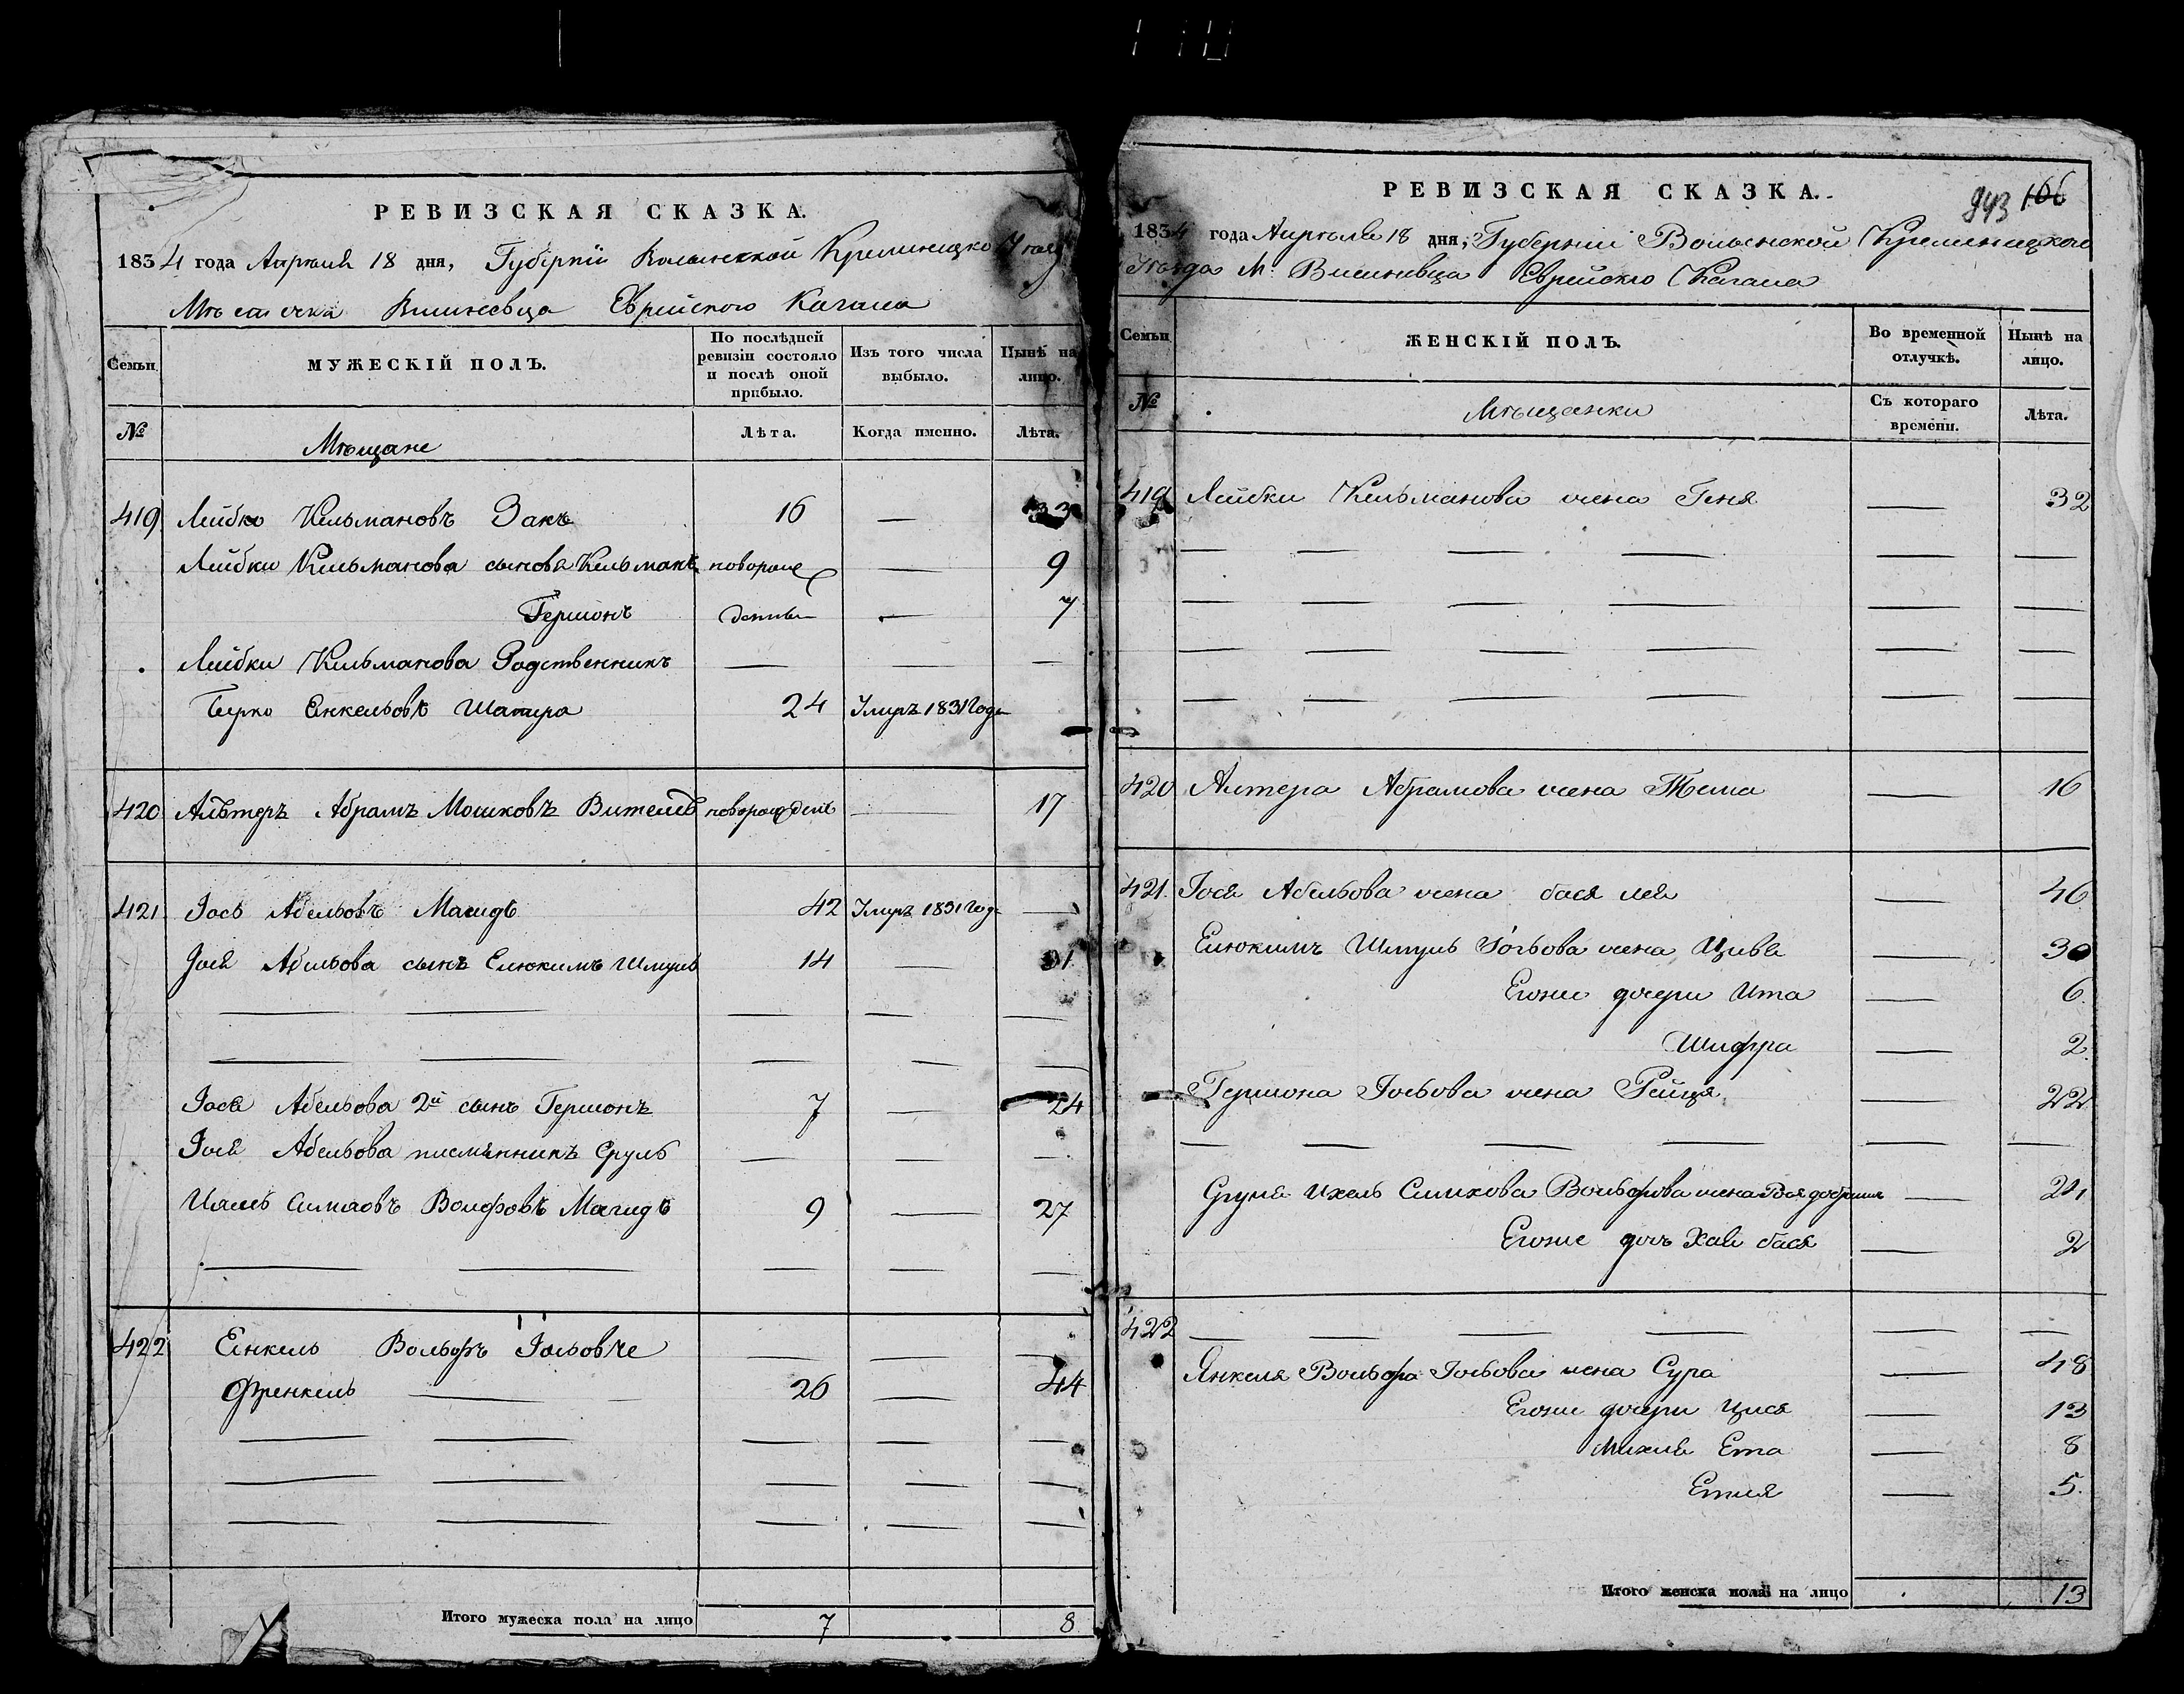 РЕВИЗСКАЯ СКАЗКА.
1834 года Апреля 18 дня, Губернии Волынской Кременецкого Уезда
Мѣстечка Вишневца Еврейского Кагала
Семьи
МУЖЕСКІЙ ПОЛЪ.
По послѣдней ревизіи состояло и послѣ оной прибыло.
Изъ того числа выбыло.
Нынѣ на лицо.
№
Мѣщане
Лѣта.
Когда именно.
Лѣта.
419 Лейбко Кельмановъ Закъ 16 — 33
Лейбки Кельманова сыновя Кельманъ новорож — 9
Гершонъ денные — 7
Лейбки Кельманова Родственникъ — — —
Берко Енкельовъ Шапира 24 Умеръ 1831 года
420 Альтеръ Абрамъ Мошковъ новорожденъ — 17
421 Іось Абельовъ Магидъ 42 Умеръ 1831 года —
Іося Абельова сынъ Елюкимъ Шмуль 14 — 31
— — — — —
— — — — —
Іося Абельова 2й сынъ Гершонъ 7 — 24
Іося Абельова племянникъ Сруль — — —
Волфовъ Магидъ 9 — 27
— — — — —
422 Енкель Вольфъ Іосьовче — — —
Френкель — — 26 — 44
— — — — —
— — — — —
— — — — —
Итого мужеска пола на лицо 7 8
РЕВИЗСКАЯ СКАЗКА.
943 166
1834 года Апреля 18 дня, Губернии Волынской Кременецкого
Уезда М. Вишневца Еврейского Кагала
Семьи
ЖЕНСКІЙ ПОЛЪ.
Во временной отлучкѣ.
Нынѣ на лицо.
№
Мѣщанки
Съ котораго времени.
Лѣта.
419 Лейбки Кельманова жена Геня — 32
— — — — — —
— — — — — —
— — — — — —
— — — — — —
420 Алтера Абрамова жена Тема — 16
421. Іося Абельова жена бася лея — 46
Елюкимъ Шмуль Іосьова жена Цивя — 30
Егоже дочери Ита — 6
Шифра — 2
Гершона Іосьова жена Рейця — 22
— — — — — —
Сруля Вольфова жена — 21
Егоже дочь Хая бася — 2
422 — — — — — —
Янкеля Вольфа Іосьова жена Сура — 48
Егоже дочери — 13
Ета — 8
— 5
Итого женска пола на лицо 13